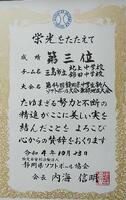 栄光をたたえて
成績 第三位
チーム名 三島市立 北上中学校
錦田中学校
大会名 第45回静岡県中学生新人
ソフトボール大会 東部地区大会
たゆまざる努力と不断の
精進がここに美しい実を
結んだことをよろこび
心からの賛辞をおくります
令和4年10月23日
静岡県ソフトボール協会
会長 内海 信明